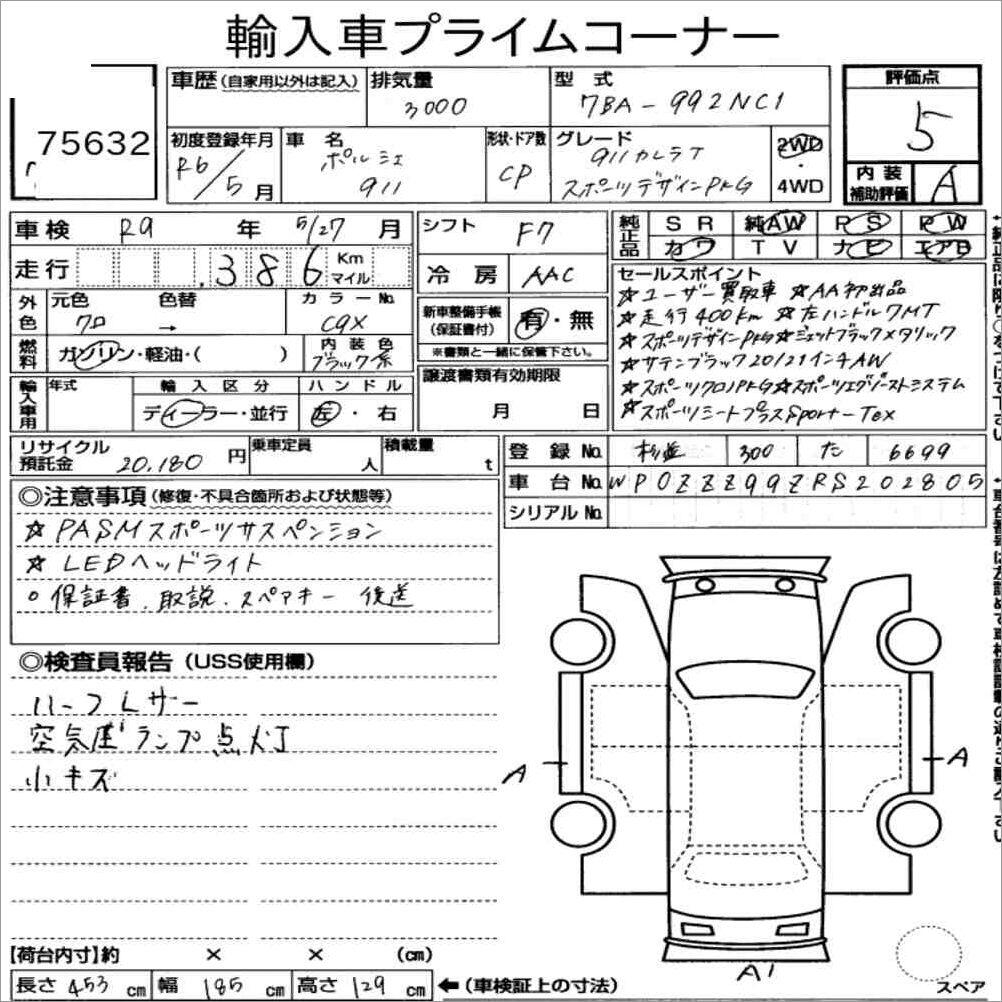 輸入車プライムコーナー
75632
車歴(自家用以外は記入)
排気量 3000
型式 7BA-992NC1
評価点 5
初度登録年月 R6/5月
車名 ポルシェ 911
形状・ドア数 CP
グレード 911カレラT スポーツデザインPKG
2WD・4WD
内装補助評価 A
車検 R9年 5/27月
シフト F7
純正品 SR 純AW PS PW
カワ TV ナビ エアB
走行 386 Km マイル
冷房 AAC
セールスポイント
☆ユーザー買取車 ☆AA初出品
☆走行400km ☆左ハンドル7MT
☆スポーツデザインPKG☆ジェットブラックメタリック
☆サテンブラック20/21インチAW
☆スポーツクロノPKG☆スポーツエグゾーストシステム
☆スポーツシートプラスSport-Tex
外色 元色 クロ 色替 → カラーNo. C9X
新車整備手帳(保証書付) 有・無
※書類と一緒に保管下さい。
燃料 ガソリン・軽油・( )
内装色 ブラック系
譲渡書類有効期限 月 日
輸入車用 年式 輸入区分 ディーラー・並行
ハンドル 左・右
リサイクル預託金 20,180円
乗車定員 人
積載量 t
登録No. 杉並 300 た 6699
車台No. WP0ZZZ99ZRS202805
シリアルNo.
◎注意事項(修復・不具合箇所および状態等)
☆PASMスポーツサスペンション
☆LEDヘッドライト
○保証書、取説、スペアキー 後送
◎検査員報告(USS使用欄)
ハーフレザー
空気圧ランプ点灯
小キズ
A
A
A1
スペア
【荷台内寸】約 × × (cm)
長さ 453cm 幅 185cm 高さ 129cm ←(車検証上の寸法)